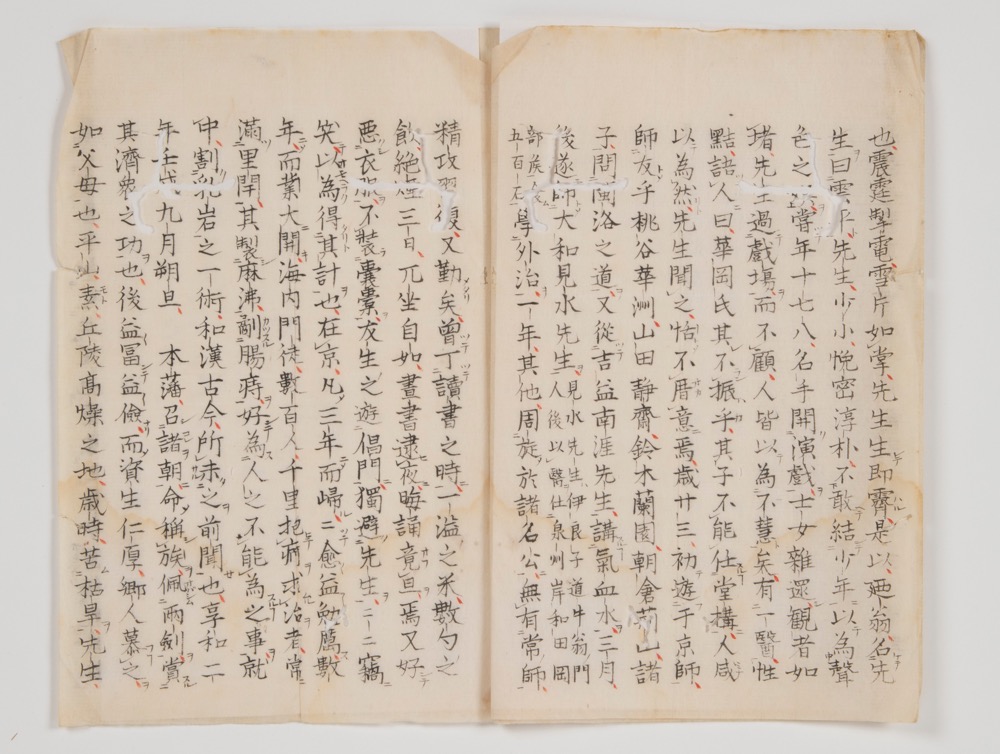 也、震霆掣電、雪片如掌、先生生即霽、是以廼翁名先
生曰雲平、先生少小悅密淳朴、不敢結少年、以為聲
色之、當年十七八、名手開演戲、士女雜還、觀者如
堵、先生過戲場而不顧、人皆以為不慧矣、有一醫性
黠、語人曰、華岡氏其不振乎、其子不能仕堂構、人咸
以為然、先生聞之、恬不屑意焉、歲廿三、初遊于京師、
師友乎桃谷華洲山田靜齋、鈴木蘭園、朝倉荊山諸
子、問閩洛之道、又從吉益南涯先生、講氣血水、三月、
後遂師大和見水先生、見水先生、伊良子道牛翁門人、後以醫仕泉州岸和田岡
部侯、食五百石、學外治、一年、其他周旋於諸名公、無有常師、
精攻習復、又勤矣、曾丁讀書之時、一溢之米、數勺之
飲、絕煙三日、兀坐自如、晝書逮夜、晦誦竟旦焉、又好
惡衣服、不裝囊橐、友生之遊倡門、獨避先生、一二竊
笑、以為得其計也、在京、凡三年而歸、二愈益勉厲、數
年而業大開、海内門徒、數百人、千里抱病求治者、常
滿里閈、其製麻沸、刳腸痔、好為人之不能為之事、就
中、割乳岩之一術、和漢古今所未之前聞也、享和二
年壬戌九月朔旦、 本藩召諸朝、命稱族佩兩劍、賞
其濟衆之功也、後益冨益儉、而資生仁厚、鄉人慕之
如父母也、平山、素丘陵高燥之地、歲時苦枯旱、先生